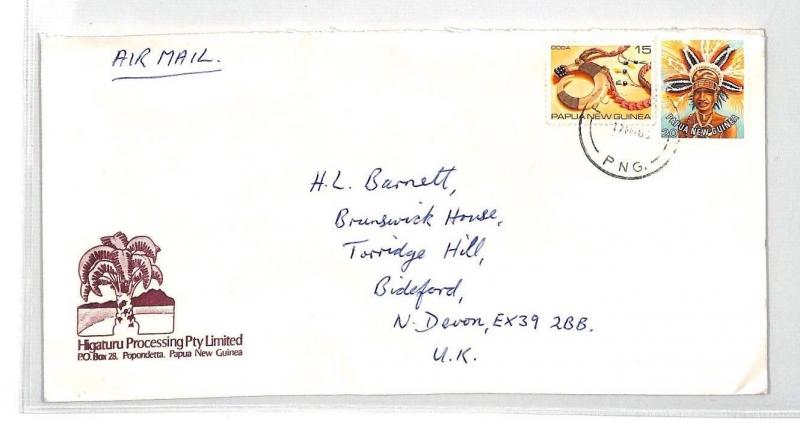 AIR MAIL.
DOBA 15
PAPUA NEW GUINEA
PAPUA NEW GUINEA
20
P.N.G.
H.L. Barnett,
Brunswick House,
Torridge Hill,
Bideford,
N. Devon, EX39 2BB.
U.K.
Higaturu Processing Pty Limited
P.O. Box 28, Popondetta. Papua New Guinea